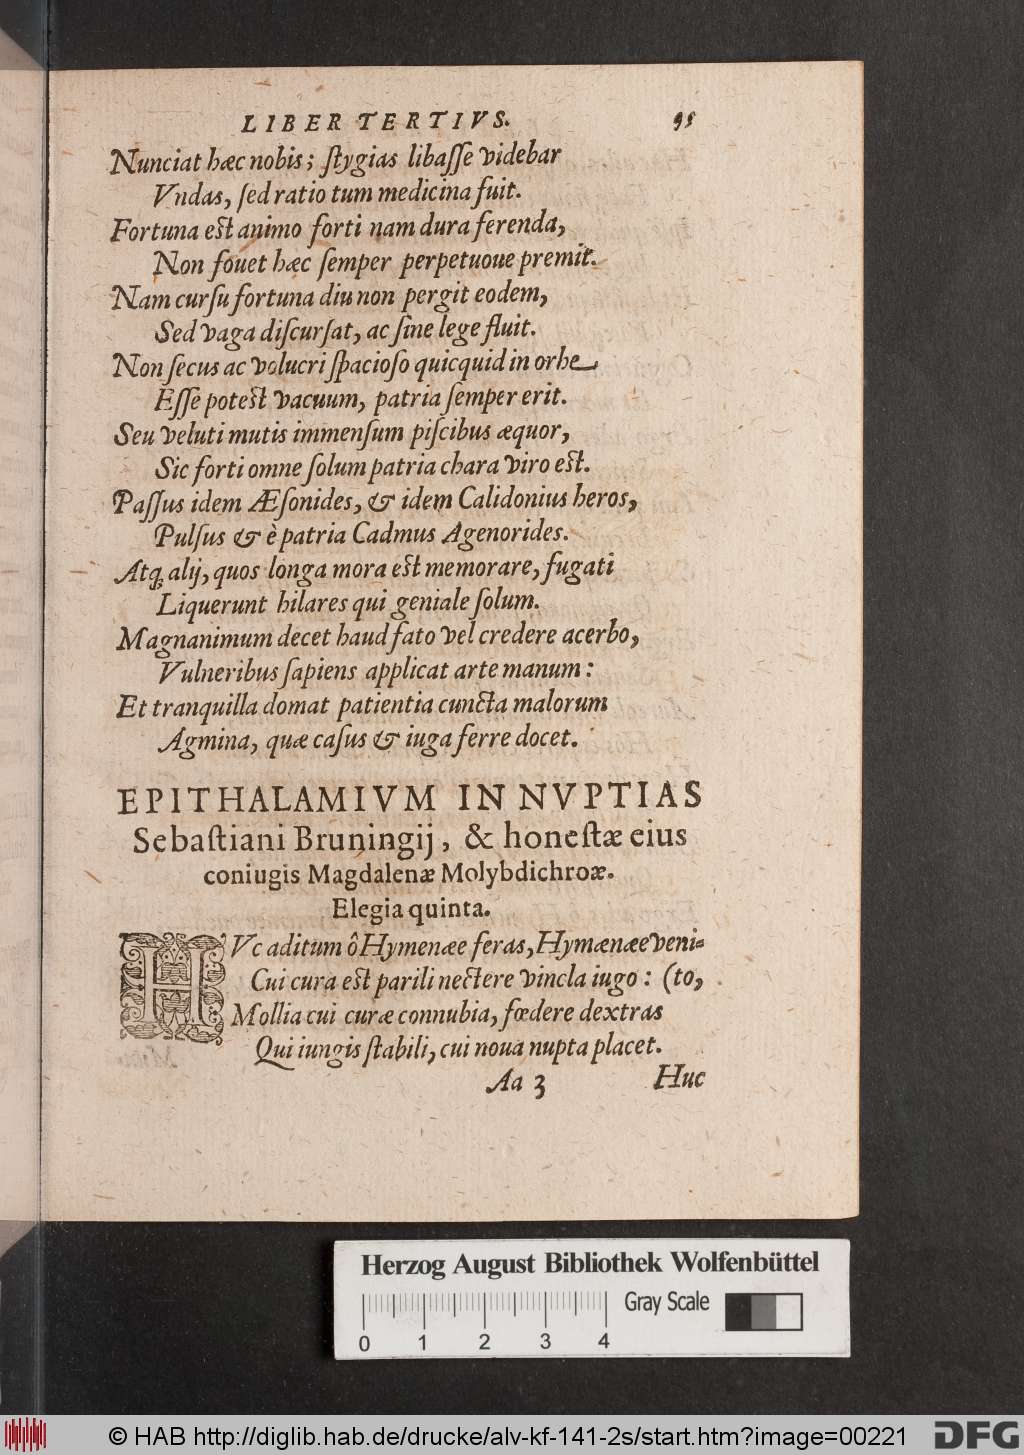 LIBER TERTIVS. 95
Nunciat hæc nobis; ſtygias libaſſe videbar
Vndas, ſed ratio tum medicina fuit.
Fortuna eſt animo forti nam dura ferenda,
Non fouet hæc ſemper perpetuoue premit.
Nam curſu fortuna diu non pergit eodem,
Sed vaga diſcurſat, ac ſine lege fluit.
Non ſecus ac volucri ſpacioſo quicquid in orbe
Eſſe poteſt vacuum, patria ſemper erit.
Seu veluti mutis immenſum piſcibus æquor,
Sic forti omne ſolum patria chara viro eſt.
Paſſus idem Æſonides, & idem Calidonius heros,
Pulſus & è patria Cadmus Agenorides.
Atq; alij, quos longa mora eſt memorare, fugati
Liquerunt hilares qui geniale ſolum.
Magnanimum decet haud fato vel credere acerbo,
Vulneribus ſapiens applicat arte manum:
Et tranquilla domat patientia cuncta malorum
Agmina, quæ caſus & iuga ferre docet.
EPITHALAMIVM IN NVPTIAS
Sebaſtiani Bruningij, & honeſtæ eius
coniugis Magdalenæ Molybdichroæ.
Elegia quinta.
HVc aditum ô Hymenæe feras, Hymænæe veni-
Cui cura eſt parili nectere vincla iugo: (to,
Mollia cui curæ connubia, fœdere dextras
Qui iungis ſtabili, cui noua nupta placet.
Aa 3 Huc
Herzog August Bibliothek Wolfenbüttel
Gray Scale
0 1 2 3 4
© HAB http://diglib.hab.de/drucke/alv-kf-141-2s/start.htm?image=00221
DFG